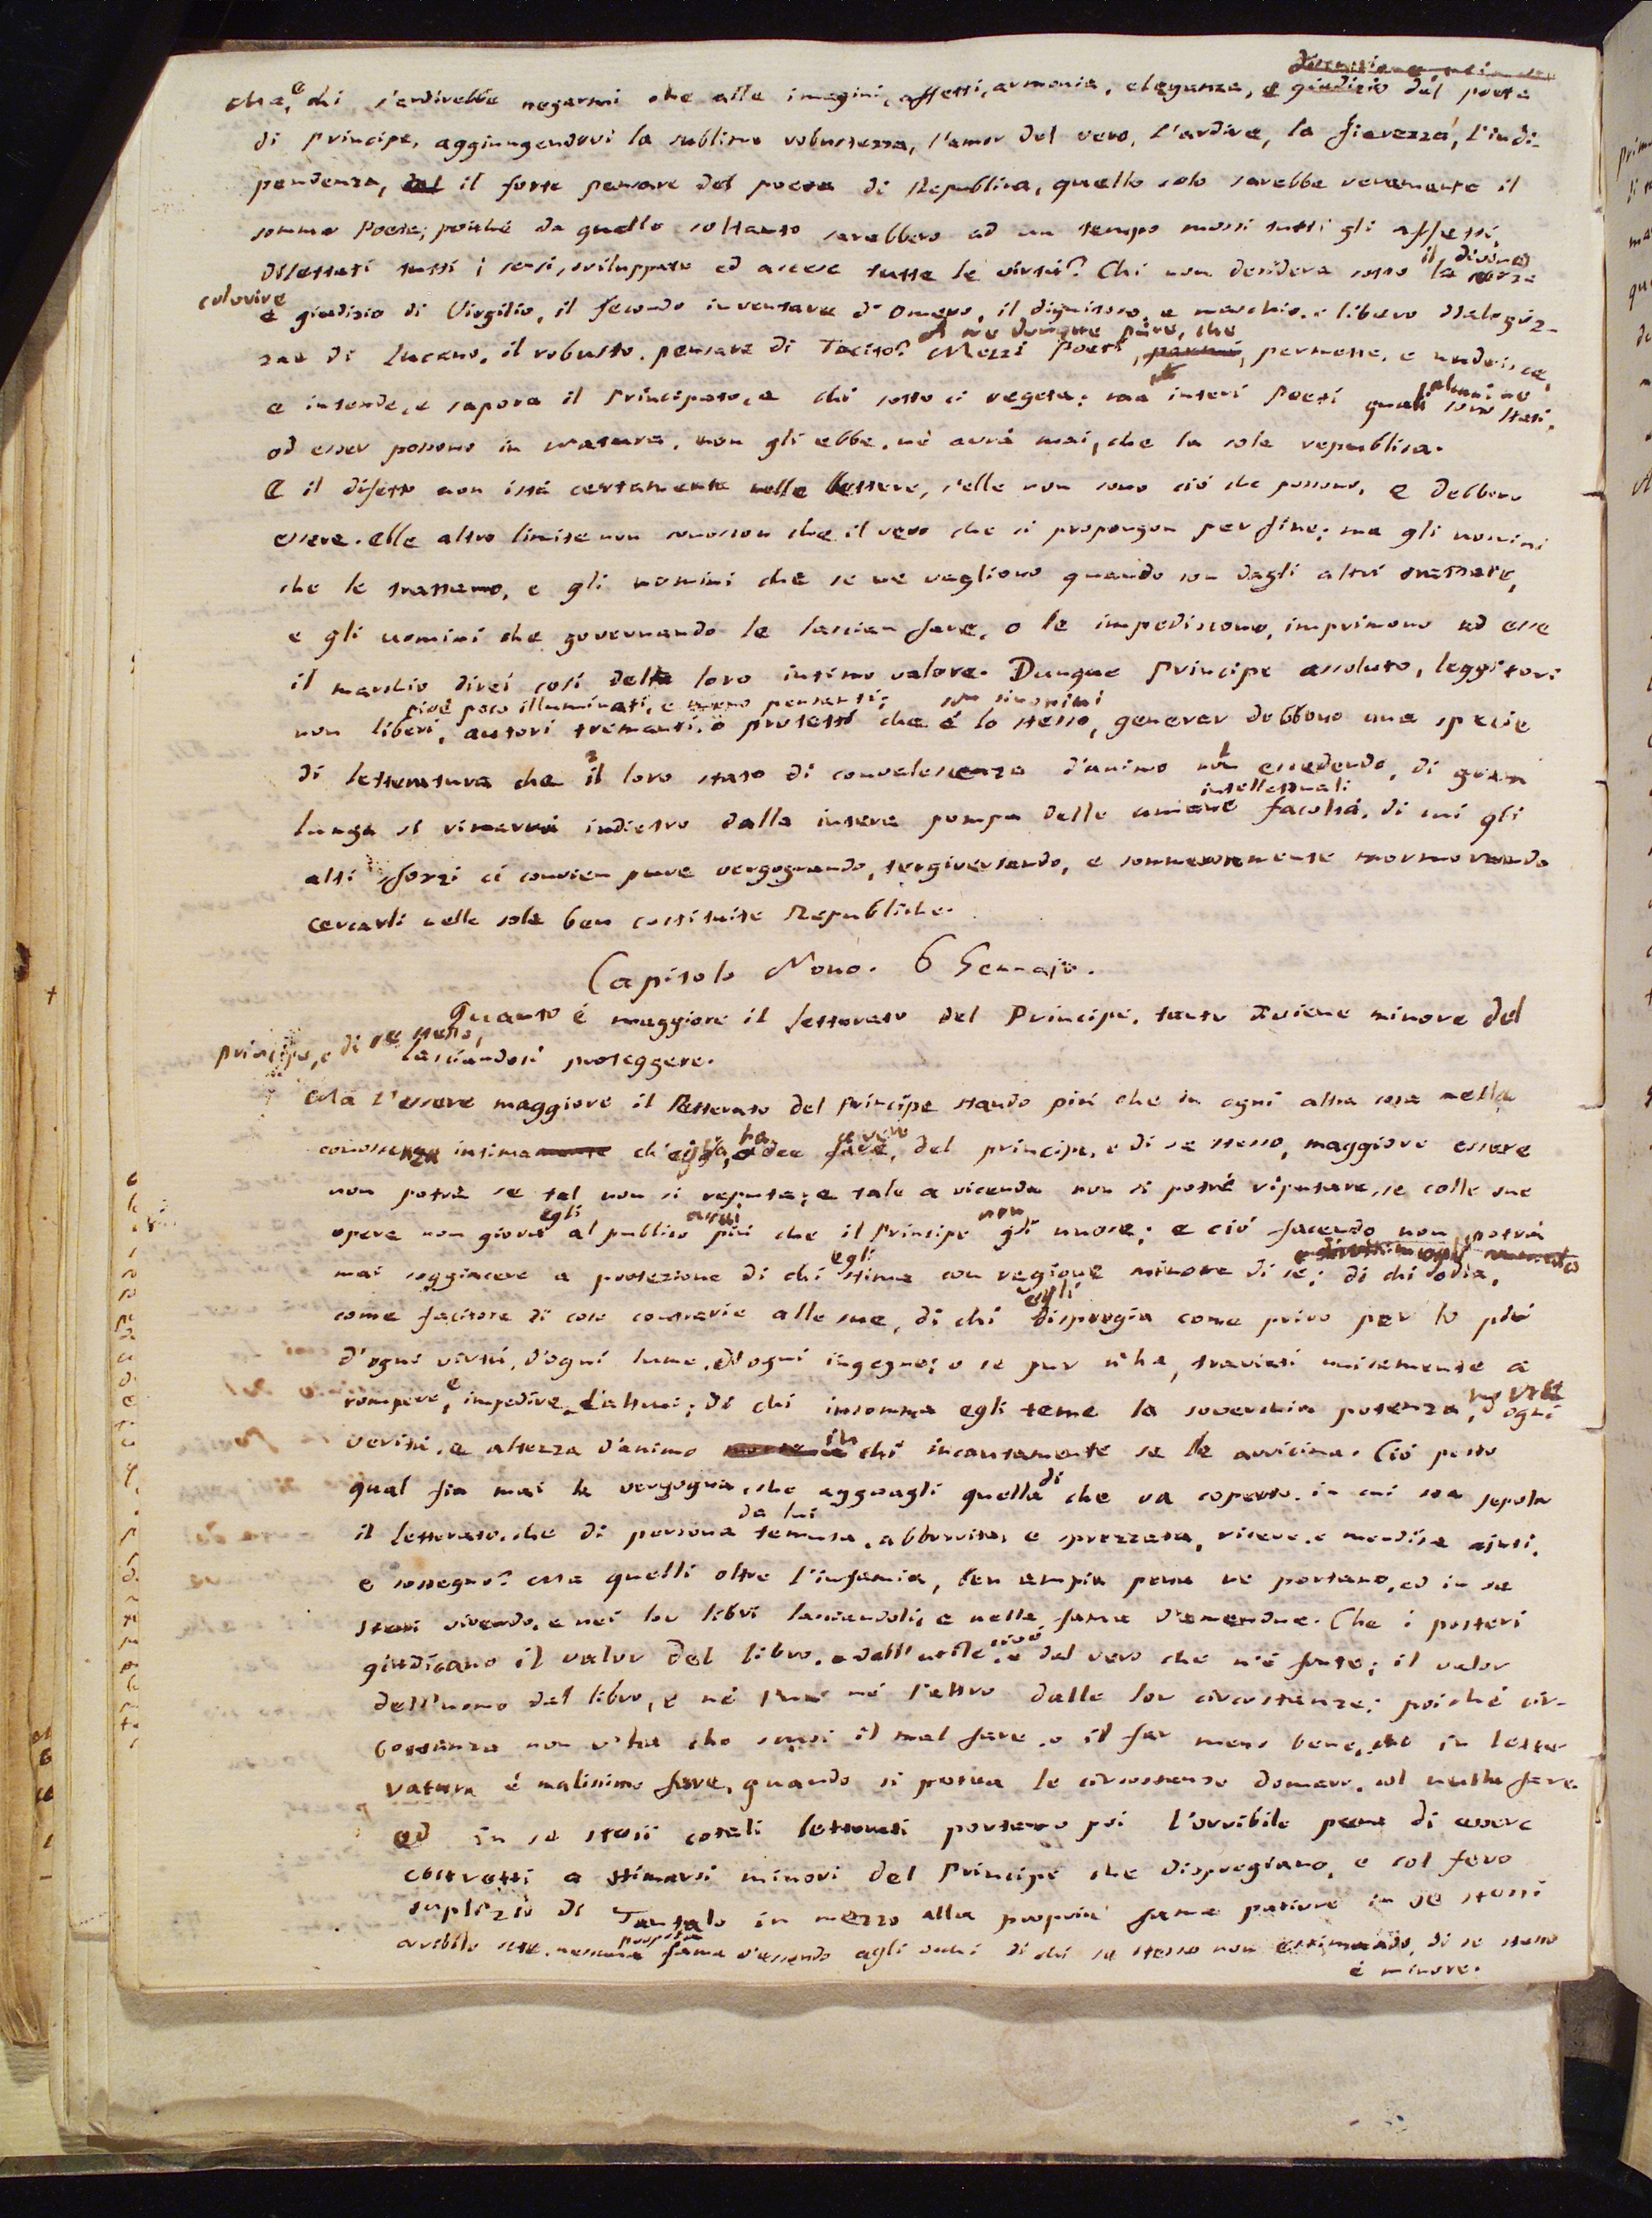 Ma, e chi s'ardirebbe negarmi che alle imagini, affetti, armonia, eleganza, e giudizio del poeta
di Principe, aggiungendovi la sublime robustezza, l'amor del vero, l'ardire, la fierezza, l'indi-
pendenza, ed il forte pensare del poeta di Republica, quello solo sarebbe veramente il
sommo Poeta; poiché da quello soltanto sarebbero ad un tempo mossi tutti gli affetti,
il divino
dilettati tutti i sensi, sviluppate ed accese tutte le virtù? Chi non desidera sotto la
colorire
e giudizio di Virgilio, il fecondo inventare d'Omero, il dignitoso, e maschio, e libero dialogiz-
A me dunque pare, che
zar di Lucano, il robusto pensare di Tacito? Mezzi Poeti, permette, e
e intende, e sapora il Principato, e chi sotto ci vegeta; ma interi Poeti quali sono stati,
od esser possono in natura, non gli ebbe, nè avrà mai, che la sola republica.
E il difetto non istà certamente nelle lettere, s'elle non sono ciò che possono, e debbono
essere. elle altro limite non conoscon che il vero che si propongon per fine; ma gli uomini
che le trattano, e gli uomini che se ne vagliono quando son dagli altri trattate,
e gli uomini che governando le lascian fare, o le impediscono, imprimono ad esse
il marchio direi così della loro intimo valore. Dunque Principe assoluto, leggitori
cioè poco illuminati, e meno pensanti; son sinonimi
non liberi, autori tremanti, o protetti che è lo stesso, generar debbono una specie
di letteratura che il loro stato di convalescenza d'animo non eccedendo, di gran
intellettuali
lunga si rimarrà indietro dalla intera pompa delle umane facoltà, di cui gli
alti sforzi ci convien pure vergognando, tergiversando, e sommessamente mormorando
cercarli nelle sole ben costituite Republiche.
Capitolo Nono. 6 Gennajo.
Quanto è maggiore il letterato del Principe, tanto diviene minore del
principe, e di se stesso,
lasciandosi proteggere.
Ma l'essere maggiore il letterato del Principe stando più che in ogni altra cosa nella
ha, avere
conoscenza intima ch'egli ha, o dee fare, del principe, e di se stesso, maggiore essere
non potrà se tal non si reputa; e tale a vicenda non si potrà riputare, se colle sue
egli assai non
opere non giova al publico più che il Principe gli nuoce; e ciò facendo non potrà
egli
mai soggiacere a protezione di chi stima con ragione minore di se; di chi odia,
egli
come facitore di cose contrarie alle sue, di chi dispregia come privo per lo più
d'ogni virtù, d'ogni lume, d'ogni ingegno; o se pur n'ha, traviati unicamente a
rompere, e impedire l'altrui; di chi insomma egli teme la soverchia potenza, ogni
in
verità, e altezza d'animo chi incautamente se le avvicina. Ciò posto
di
qual fia mai la vergogna, che agguagli quella che va coperto, in cui sta sepolto
da lui
il letterato, che di persona temuta, abborrita, e sprezzata, riceve, e mendica ajuti,
e sostegno? Ma quelli oltre l'infamia, ben ampia pena ne portano, ed in se
stessi vivendo, e nei lor libri lasciandoli, e nella fama d'amendue. Che i posteri
cioè
giudicano il valor del libro, dall'utile, e dal vero che n'è fonte; il valor
dell'uomo dal libro, e nè l'uno nè l'altro dalle lor circostanze; poiché cir-
costanza non v'ha che scusi il mal fare, o il far meno bene, che in lette-
ratura è malissimo fare, quando si potea le circostanze domare, col nulla fare.
ed in se stessi cotali letterati portano poi l'orribile pena di essere
costretti a stimarsi minori del Principe che dispregiano, e col fero
suplizio di Tantalo in mezzo alla propria fama patirne in se stessi
propria
orribile sete, nessuna fama v'essendo agli occhi di chi se stesso non estimando, di se stesso
è minore.